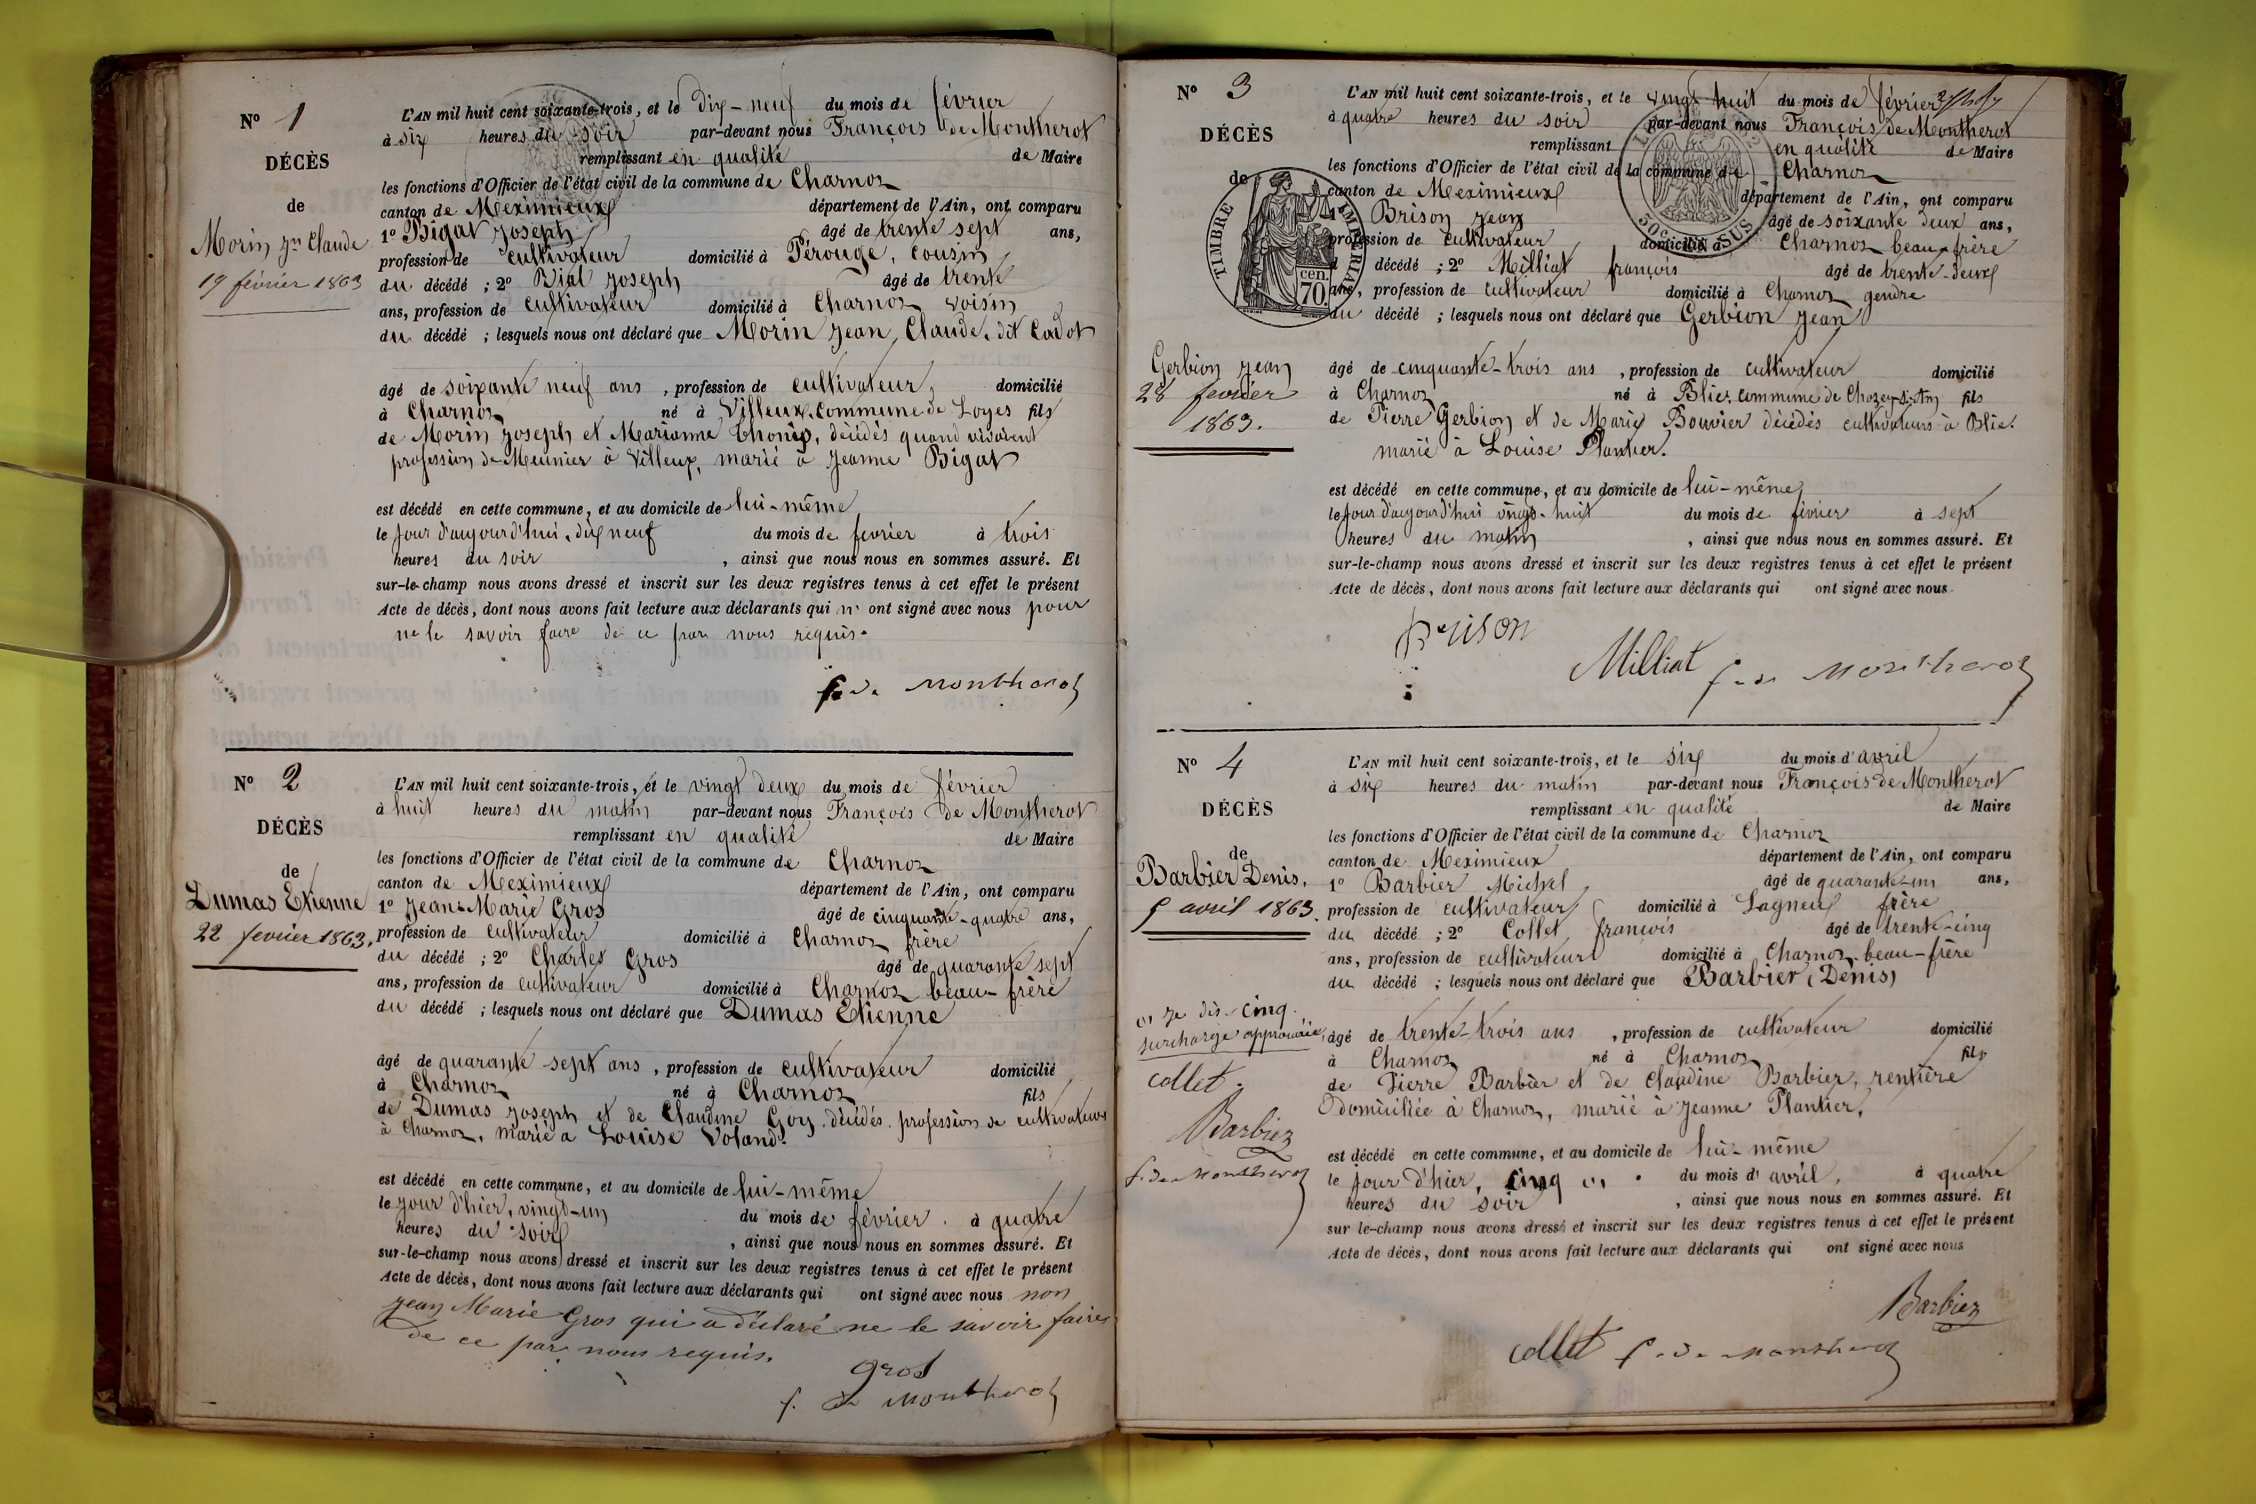 N° 1
DÉCÈS
de
Morin Jn Claude
19 février 1863
L'AN mil huit cent soixante-trois, et le dix-neuf du mois de février
à six heures du soir par-devant nous François de Montherot
remplissant en qualité de Maire
les fonctions d'Officier de l'état civil de la commune de Charnoz
canton de Meximieux département de l'Ain, ont comparu
1° Bigat Joseph âgé de trente sept ans,
profession de cultivateur domicilié à Pérouge, cousin
du décédé ; 2° Vial Joseph âgé de trente
ans, profession de cultivateur domicilié à Charnoz voisin
du décédé ; lesquels nous ont déclaré que Morin Jean Claude, dit Cadot
âgé de soixante neuf ans, profession de cultivateur, domicilié
à Charnoz né à Villeux, commune de Loyes fils
de Morin Joseph et Marianne décédés quand vivaient
profession de Meunier à Villeux, marié à Jeanne Bigat
est décédé en cette commune, et au domicile de lui-même
le jour d'aujourd'hui, dix neuf du mois de fevrier à trois
heures du soir, ainsi que nous nous en sommes assuré. Et
sur-le-champ nous avons dressé et inscrit sur les deux registres tenus à cet effet le présent
Acte de décès, dont nous avons fait lecture aux déclarants qui n' ont signé avec nous pour
ne le savoir faire de ce par nous requis.
f. de Montherot
N° 2
DÉCÈS
de
Dumas Etienne
22 fevrier 1863.
L'AN mil huit cent soixante-trois, et le vingt deux du mois de février
à huit heures du matin par-devant nous François de Montherot
remplissant en qualité de Maire
les fonctions d'Officier de l'état civil de la commune de Charnoz
canton de Meximieux département de l'Ain, ont comparu
1° Jean-Marie Gros âgé de cinquante-quatre ans,
profession de cultivateur domicilié à Charnoz frère
du décédé ; 2° Charles Gros âgé de quarante sept
ans, profession de cultivateur domicilié à Charnoz beau-frère
du décédé ; lesquels nous ont déclaré que Dumas Etienne
âgé de quarante sept ans, profession de cultivateur domicilié
à Charnoz né à Charnoz fils
de Dumas Joseph et de Claudine Goy décédés profession de cultivateurs
à Charnoz, marié à Louise Voland.
est décédé en cette commune, et au domicile de lui-même
le jour d'hier, vingt-un du mois de février à quatre
heures du soir, ainsi que nous nous en sommes assuré. Et
sur-le-champ nous avons dressé et inscrit sur les deux registres tenus à cet effet le présent
Acte de décès, dont nous avons fait lecture aux déclarants qui ont signé avec nous non
Jean Marie Gros qui a déclaré ne le savoir faire
de ce par nous requis.
Gros
f. de Montherot
N° 3
DÉCÈS
de
TIMBRE IMPERIAL
70 cen.
Gerbion Jean
28 fevrier
1863.
L'AN mil huit cent soixante-trois, et le vingt huit du mois de février
à quatre heures du soir par-devant nous François de Montherot
remplissant en qualité de Maire
les fonctions d'Officier de l'état civil de la commune de Charnoz
canton de Meximieux département de l'Ain, ont comparu
1° Brison Jean âgé de soixante deux ans,
profession de cultivateur domicilié à Charnoz beau-frère
du décédé ; 2° Milliat françois âgé de trente-deux
ans, profession de cultivateur domicilié à Charnoz gendre
du décédé ; lesquels nous ont déclaré que Gerbion Jean
âgé de cinquante-trois ans, profession de cultivateur domicilié
à Charnoz né à Blie, commune de fils
de Pierre Gerbion et de Marie Bouvier décédés cultivateurs à Blie.
marié à Louise Plantier.
est décédé en cette commune, et au domicile de lui-même
le jour d'aujourd'hui vingt-huit du mois de février à sept
heures du matin, ainsi que nous nous en sommes assuré. Et
sur-le-champ nous avons dressé et inscrit sur les deux registres tenus à cet effet le présent
Acte de décès, dont nous avons fait lecture aux déclarants qui ont signé avec nous
Brison
Milliat f. de Montherot
N° 4
DÉCÈS
de
Barbier Denis.
5 avril 1863.
cinq
surcharge approuvée
Collet
Barbier
f. de Montherot
L'AN mil huit cent soixante-trois, et le six du mois d'avril
à six heures du matin par-devant nous François de Montherot
remplissant en qualité de Maire
les fonctions d'Officier de l'état civil de la commune de Charnoz
canton de Meximieux département de l'Ain, ont comparu
1° Barbier Michel âgé de quarante-un ans,
profession de cultivateur domicilié à Lagneux frère
du décédé ; 2° Collet françois âgé de trente-cinq
ans, profession de cultivateur domicilié à Charnoz beau-frère
du décédé ; lesquels nous ont déclaré que Barbier (Denis)
âgé de trente-trois ans, profession de cultivateur domicilié
à Charnoz né à Charnoz fils
de Pierre Barbier et de Claudine Barbier, rentière
domiciliée à Charnoz, marié à Jeanne Plantier.
est décédé en cette commune, et au domicile de lui-même
le jour d'hier, cinq du mois d'avril, à quatre
heures du soir, ainsi que nous nous en sommes assuré. Et
sur-le-champ nous avons dressé et inscrit sur les deux registres tenus à cet effet le présent
Acte de décès, dont nous avons fait lecture aux déclarants qui ont signé avec nous
Barbier
Collet f. de Montherot